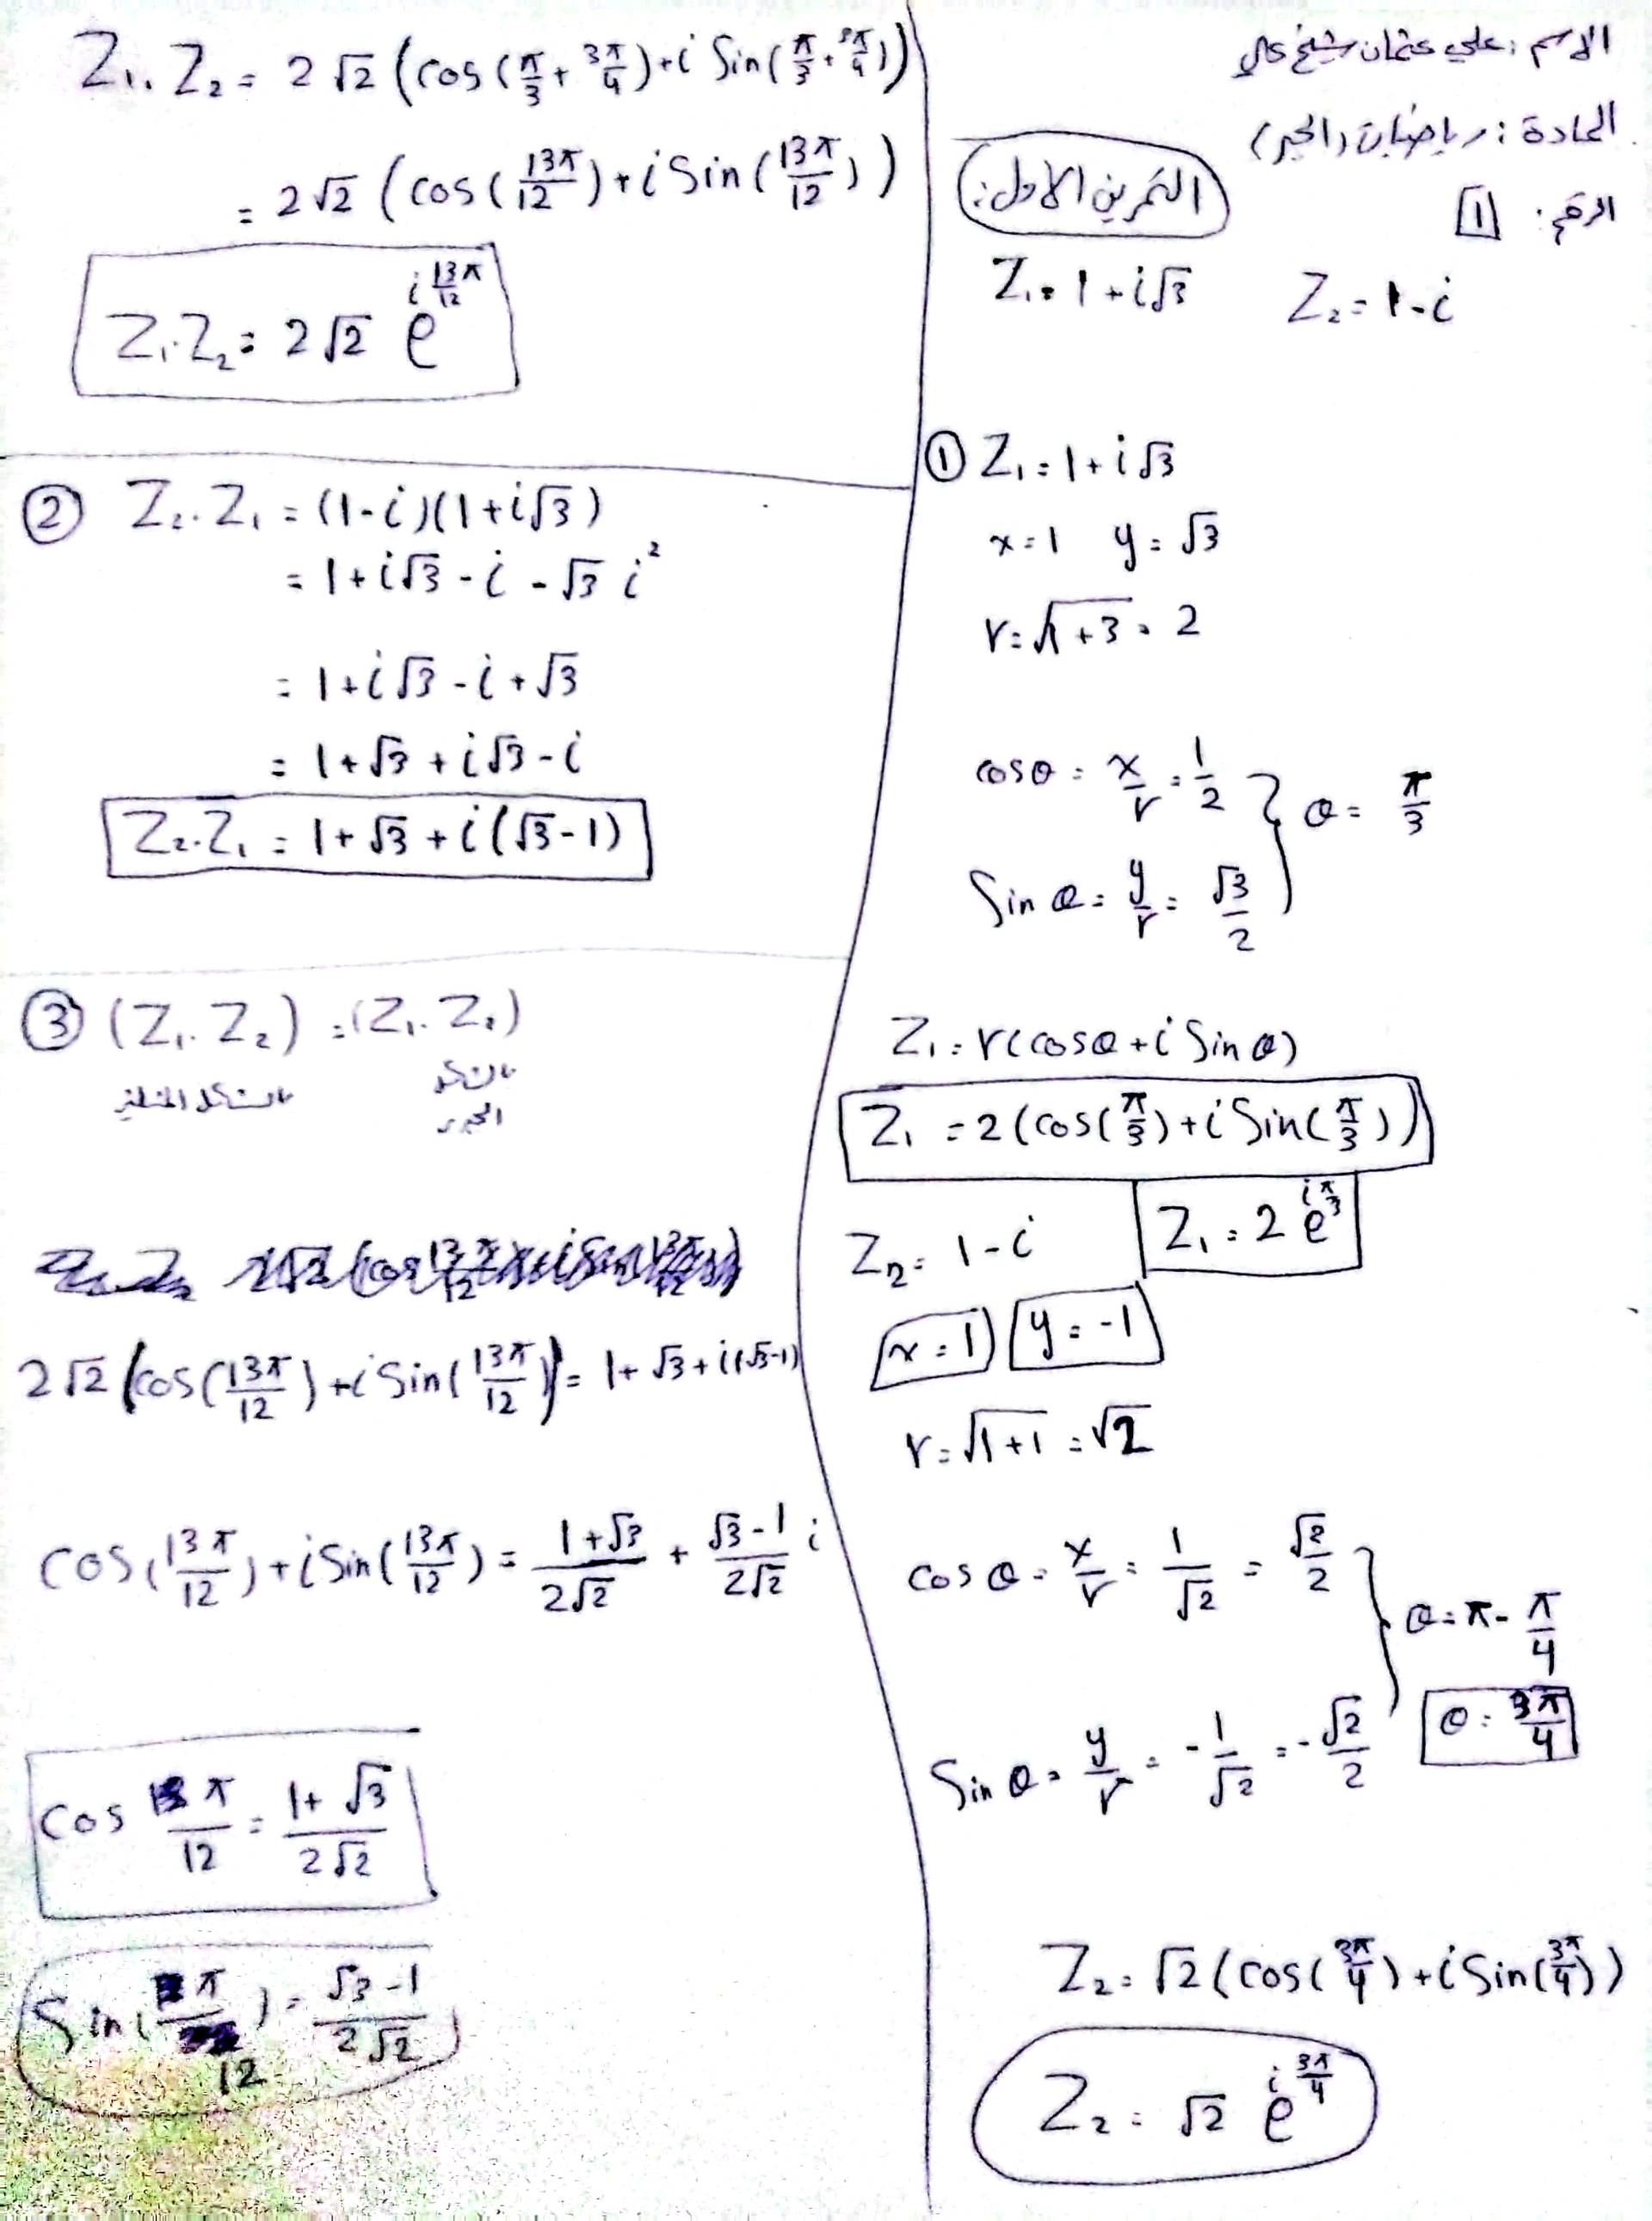 الاسم: علي عثمان شيخ علي
المادة: رياضيات (الجبر)
الرقم: 1
التمرين الاول:
Z₁ = 1 + i√3    Z₂ = 1 - i
① Z₁ = 1 + i√3
x = 1  y = √3
r = √1+3 = 2
cosθ = x/r = 1/2
Sinθ = y/r = √3/2
} θ = π/3
Z₁ = r(cosθ + i Sinθ)
Z₁ = 2(cos(π/3) + i Sin(π/3))
Z₁ = 2 e^{i π/3}
Z₂ = 1 - i
x = 1  y = -1
r = √1+1 = √2
cosθ = x/r = 1/√2 = √2/2
Sinθ = y/r = -1/√2 = -√2/2
} θ = π - π/4
θ = 3π/4
Z₂ = √2 (cos(3π/4) + i Sin(3π/4))
Z₂ = √2 e^{i 3π/4}
Z₁. Z₂ = 2√2 (cos(π/3 + 3π/4) + i Sin(π/3 + 3π/4))
= 2√2 (cos(13π/12) + i Sin(13π/12))
Z₁.Z₂ = 2√2 e^{i 13π/12}
② Z₂. Z₁ = (1-i)(1+i√3)
= 1 + i√3 - i - √3 i²
= 1 + i√3 - i + √3
= 1 + √3 + i√3 - i
Z₂.Z₁ = 1 + √3 + i(√3-1)
③ (Z₁. Z₂) = (Z₁. Z₂)
بالشكل المثلثي    بالشكل
الجبري
2√2 (cos(13π/12) + i Sin(13π/12)) = 1 + √3 + i(√3-1)
cos(13π/12) + i Sin(13π/12) = 1+√3/2√2 + √3-1/2√2 i
cos 13π/12 = 1+√3/2√2
Sin( π/12) = √3-1/2√2